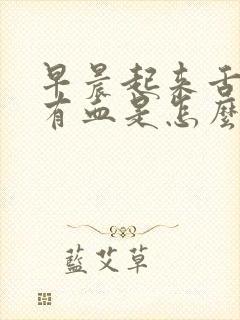 早晨起来舌
有血是怎麼
藍艾草